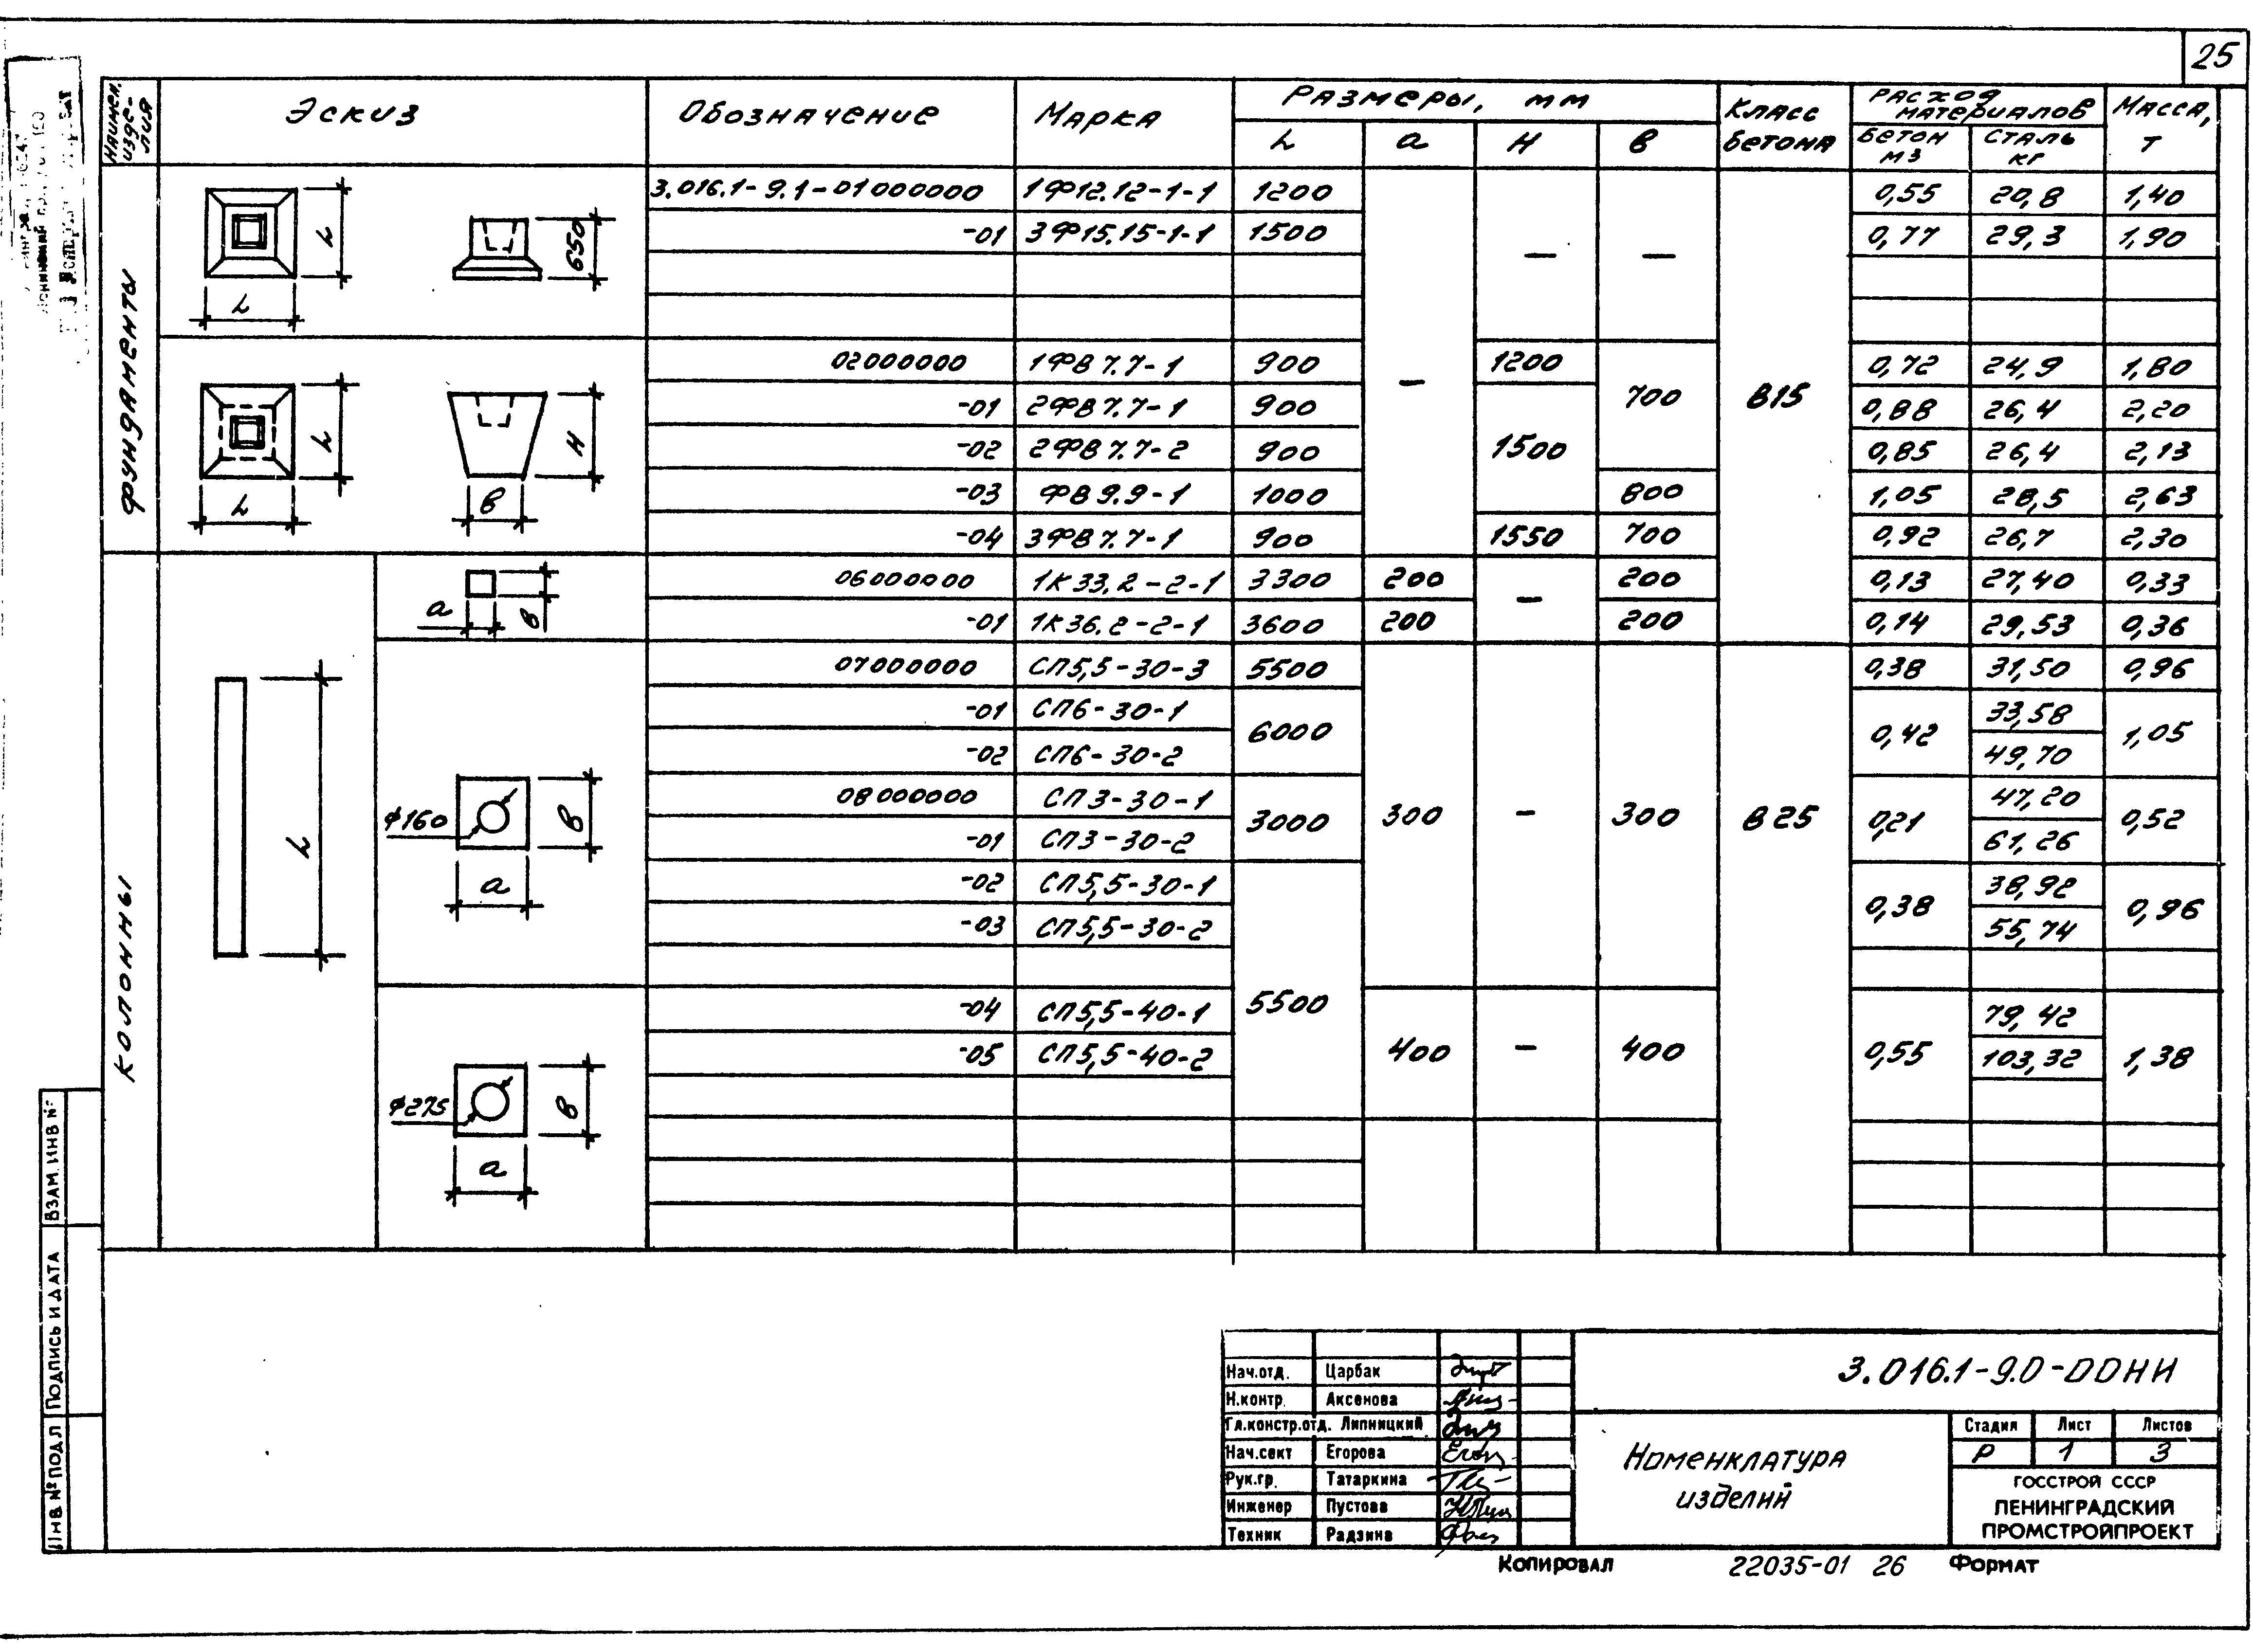 25
Наимен. изде- лия
Эскиз
Обозначение
Марка
Размеры, мм
L a H в
Класс бетона
Расход материалов
Бетон м3
Сталь кг
Масса, т
Фундаменты
L L 650
3.016.1-9.1-01000000 1Ф12.12-1-1 1200 — — — В15 0,55 20,8 1,40
-01 3Ф15.15-1-1 1500 0,77 29,3 1,90
L L H в
02000000 1ФВ7.7-1 900 1200 700 0,72 24,9 1,80
-01 2ФВ7.7-1 900 1500 0,88 26,4 2,20
-02 2ФВ7.7-2 900 0,85 26,4 2,13
-03 ФВ9.9-1 1000 800 1,05 28,5 2,63
-04 3ФВ7.7-1 900 1550 700 0,92 26,7 2,30
Колонны
L
a в
06000000 1К33.2-2-1 3300 200 — 200 0,13 27,40 0,33
-01 1К36.2-2-1 3600 200 200 0,14 29,53 0,36
ф160 a в
07000000 СП5,5-30-3 5500 300 — 300 В25 0,38 31,50 0,96
-01 СП6-30-1 6000 0,42 33,58 1,05
-02 СП6-30-2 49,70
08000000 СП3-30-1 3000 0,21 47,20 0,52
-01 СП3-30-2 61,26
-02 СП5,5-30-1 5500 0,38 38,92 0,96
-03 СП5,5-30-2 55,74
ф275 a в
-04 СП5,5-40-1 400 — 400 0,55 79,42 1,38
-05 СП5,5-40-2 103,32
ИНВ № ПОДЛ ПОДПИСЬ И ДАТА ВЗАМ. ИНВ №
Нач.отд. Царбак
Н.контр. Аксенова
Гл.констр.отд. Липницкий
Нач.сект Егорова
Рук.гр. Татаркина
Инженер Пустова
Техник Радзина
3.016.1-9.0-00НИ
Номенклатура
изделий
Стадия Лист Листов
Р 1 3
ГОССТРОЙ СССР
ЛЕНИНГРАДСКИЙ
ПРОМСТРОЙПРОЕКТ
Копировал 22035-01 26 Формат